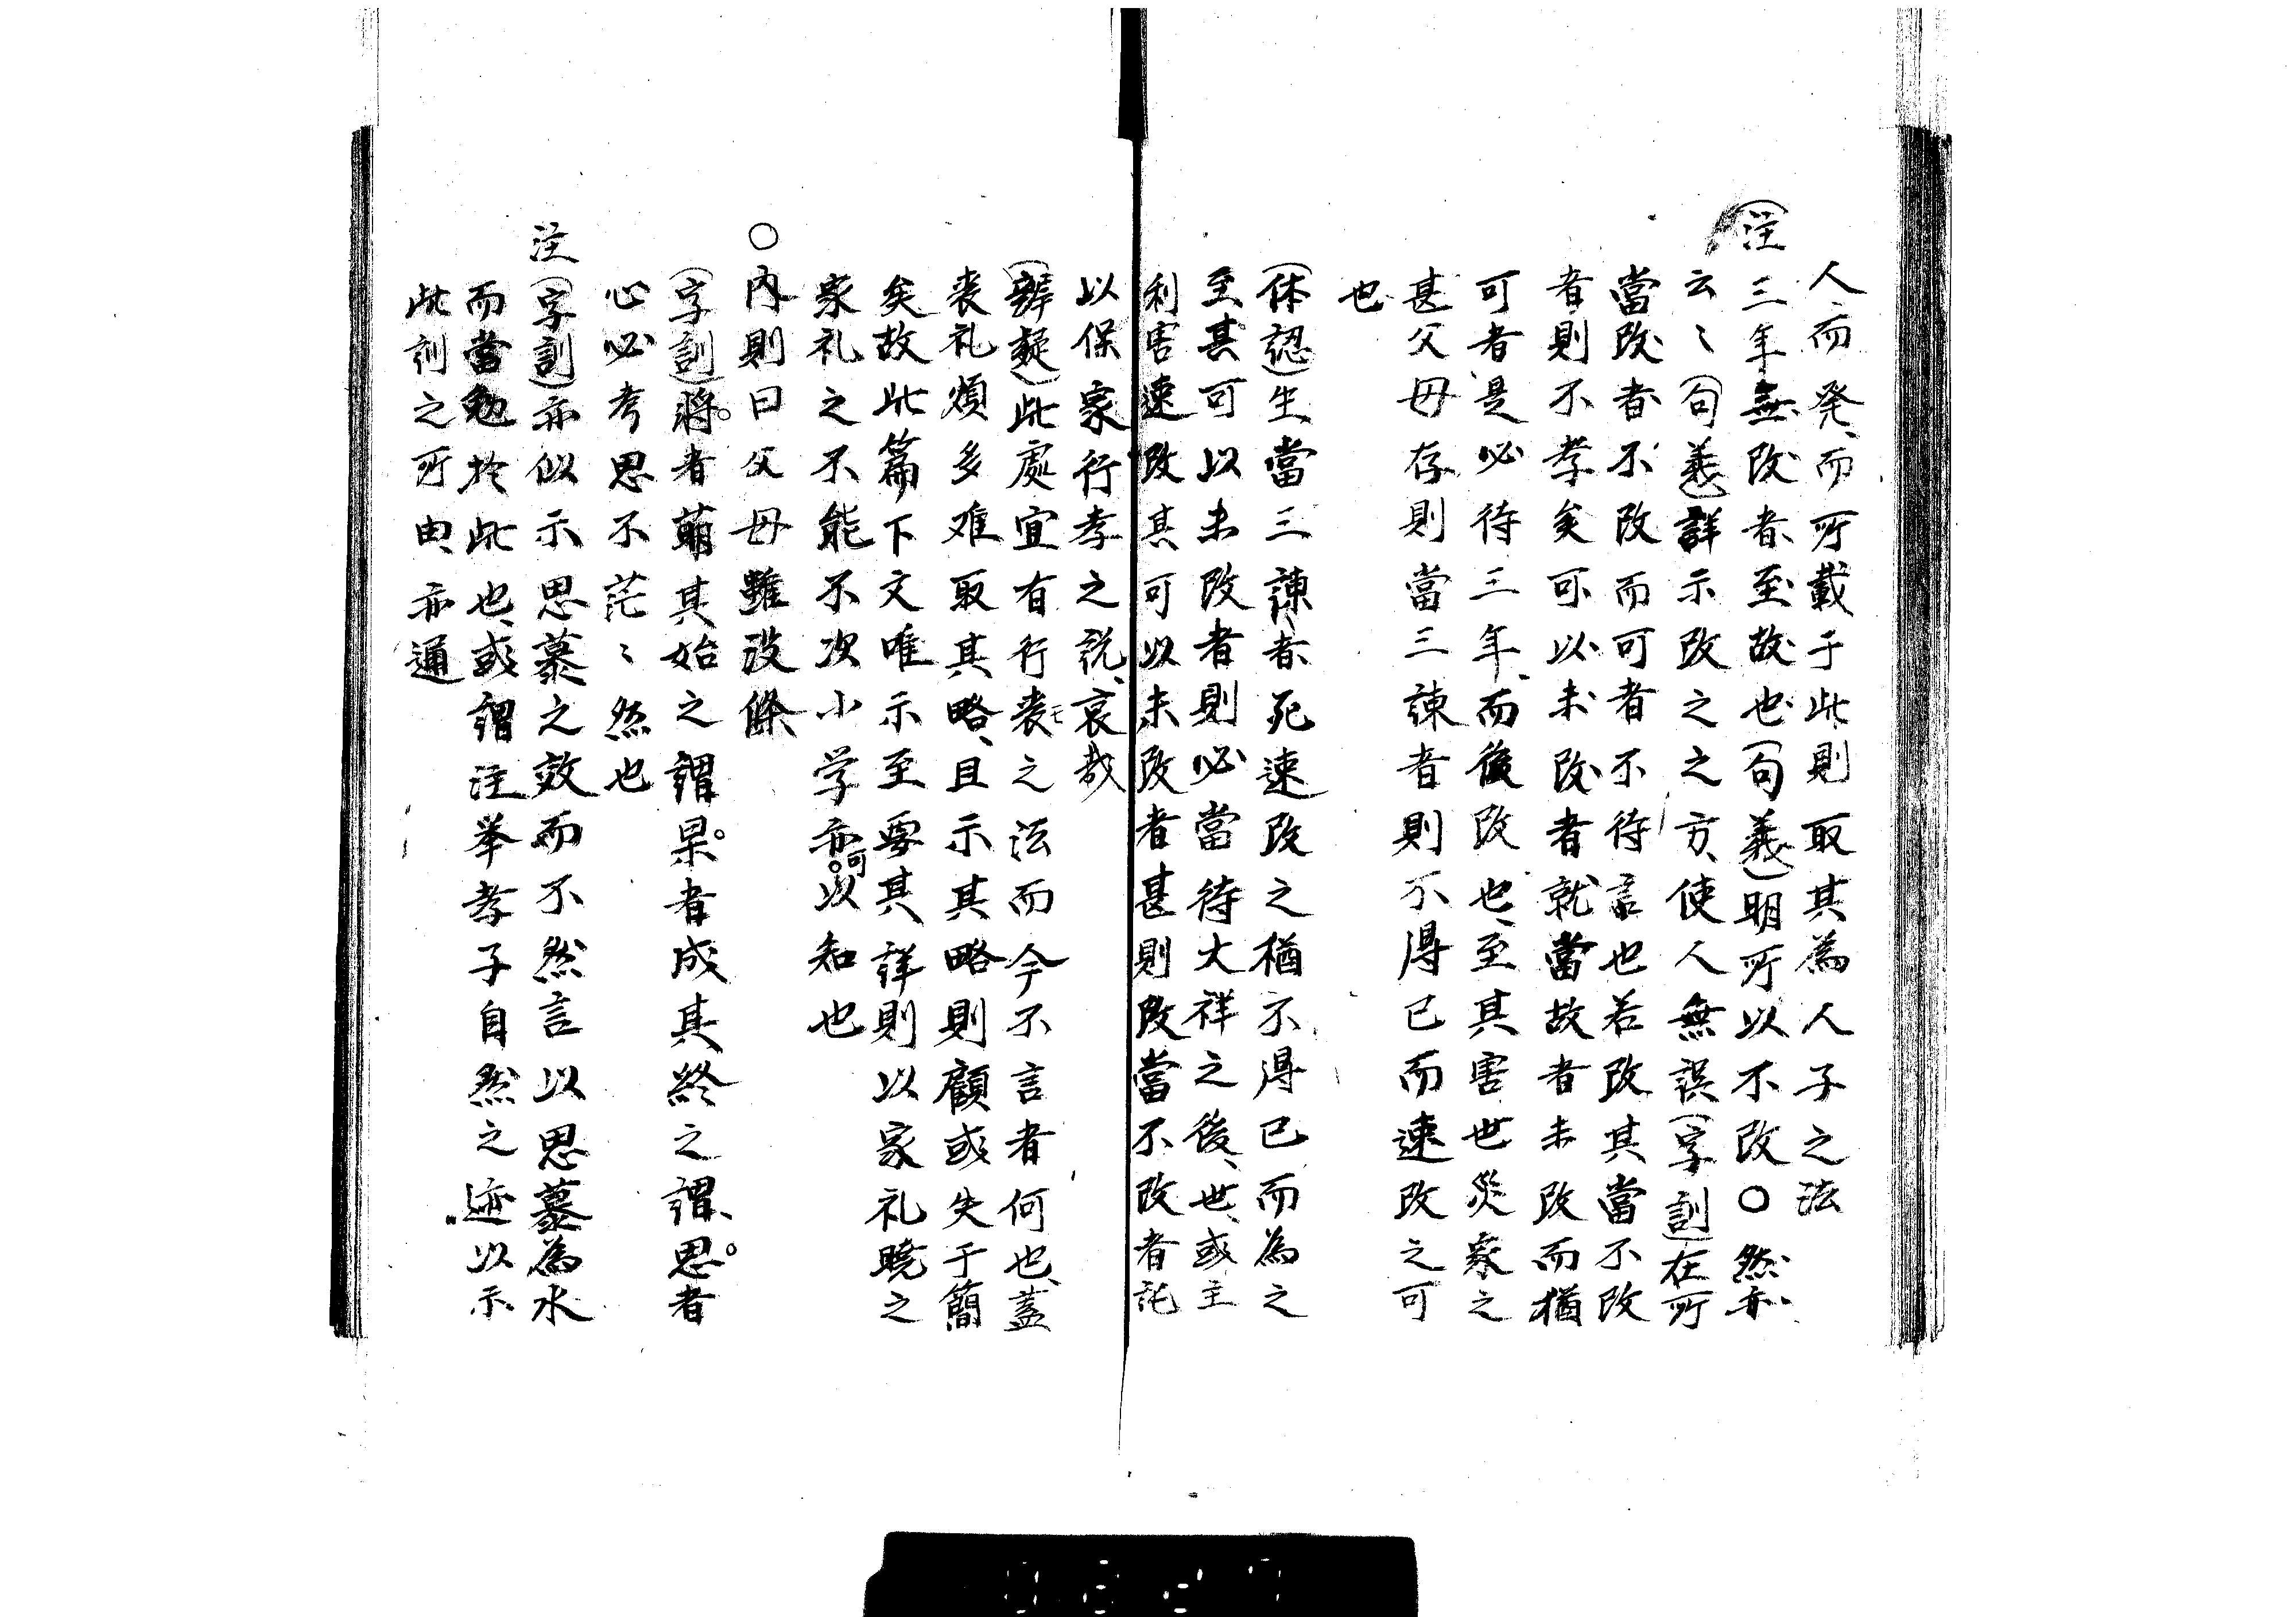 人而発、而所載于此則取其為人子之法
(注)三年無改者至故也(句義)明所以不改○然亦
云〻(句義)詳示改之之方、使人無誤(字訓)在所
當改者不改而可者不待言也若改其當不改
者則不孝矣可以未改者就當故者未改而猶
可者是必待三年、而後改也、至其害世災家之
甚父母存則當三諫者則不得已而速改之可
也
(体認)生當三諫者死速改之猶不得已而為之
至其可以未改者則必當待大祥之後、世、或主
利害速改其可以未改者甚則改當不改者託
以保家行孝之説、哀哉
(辨疑)此處宜有行喪之法而今不言者何也、蓋
喪礼煩多难取其略、且示其略則顧或失于簡
矣故此篇下文唯示至要其詳則以家礼曉之
家礼之不能不次小学亦可以知也
○内則曰父母雖没條
(字訓)將者萠其始之謂果者成其終之謂、思者
心必考思不茫〻然也
注(字訓)亦似示思慕之效而不然言以思慕為水
而當勉於此也、或謂注挙孝子自然之迹以示
此訓之所由、亦通